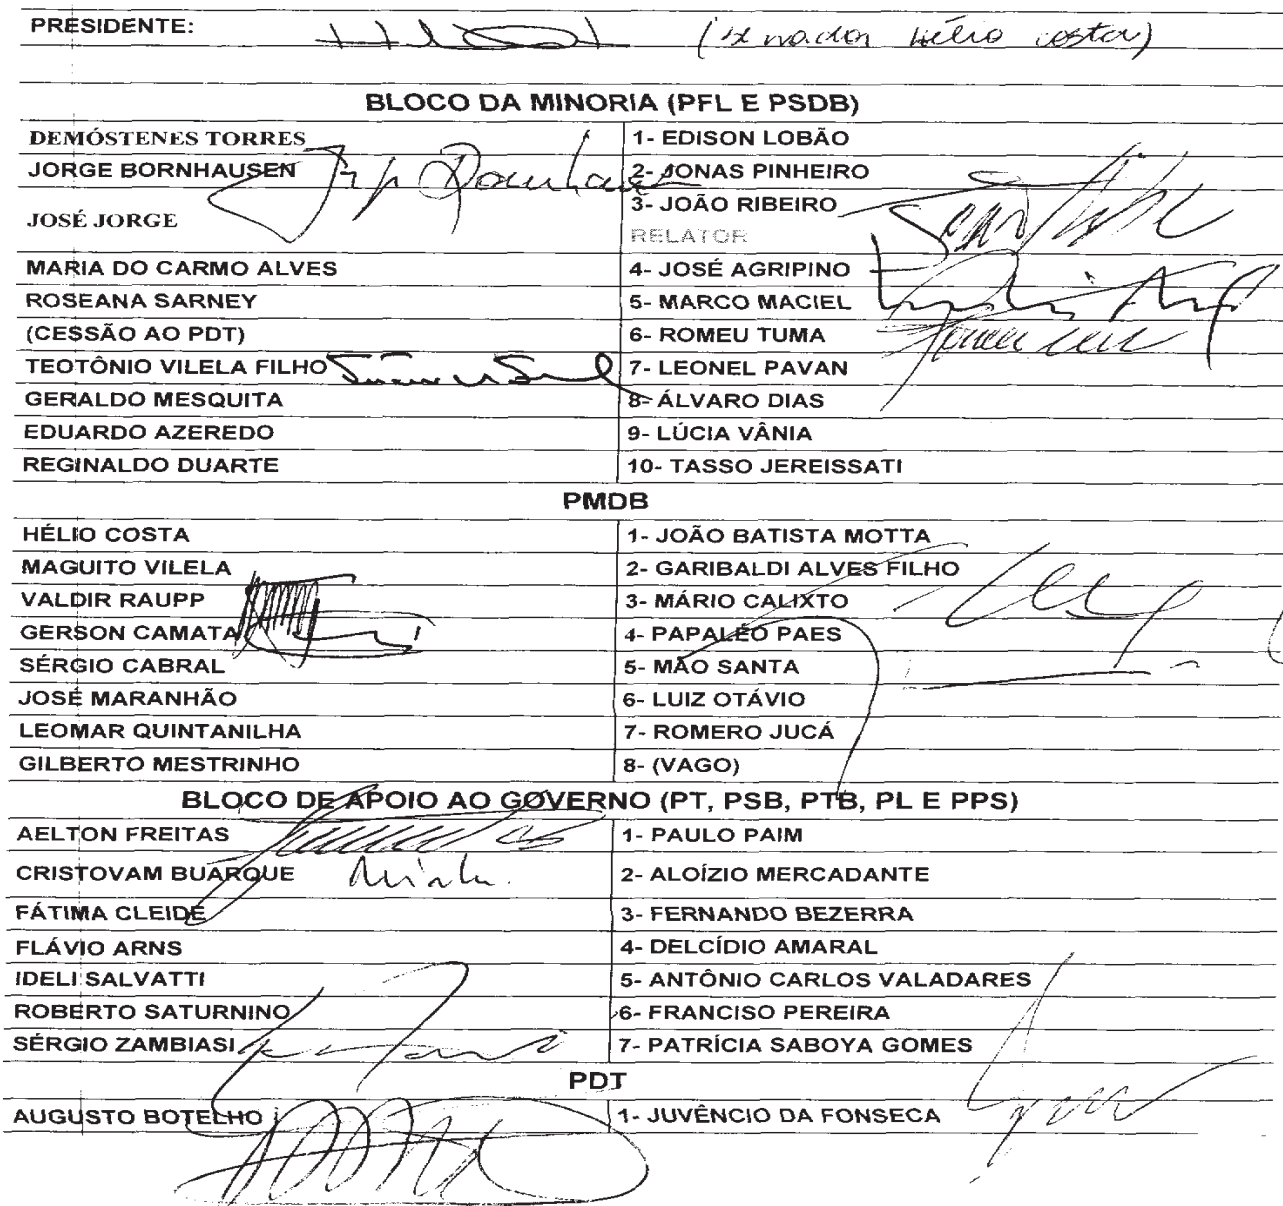 PRESIDENTE: (senador Hélio Costa)
BLOCO DA MINORIA (PFL E PSDB)
DEMÓSTENES TORRES 1- EDISON LOBÃO
JORGE BORNHAUSEN 2- JONAS PINHEIRO
JOSÉ JORGE 3- JOÃO RIBEIRO
RELATOR
MARIA DO CARMO ALVES 4- JOSÉ AGRIPINO
ROSEANA SARNEY 5- MARCO MACIEL
(CESSÃO AO PDT) 6- ROMEU TUMA
TEOTÔNIO VILELA FILHO 7- LEONEL PAVAN
GERALDO MESQUITA 8- ÁLVARO DIAS
EDUARDO AZEREDO 9- LÚCIA VÂNIA
REGINALDO DUARTE 10- TASSO JEREISSATI
PMDB
HÉLIO COSTA 1- JOÃO BATISTA MOTTA
MAGUITO VILELA 2- GARIBALDI ALVES FILHO
VALDIR RAUPP 3- MÁRIO CALIXTO
GERSON CAMATA 4- PAPALÉO PAES
SÉRGIO CABRAL 5- MÃO SANTA
JOSÉ MARANHÃO 6- LUIZ OTÁVIO
LEOMAR QUINTANILHA 7- ROMERO JUCÁ
GILBERTO MESTRINHO 8- (VAGO)
BLOCO DE APOIO AO GOVERNO (PT, PSB, PTB, PL E PPS)
AELTON FREITAS 1- PAULO PAIM
CRISTOVAM BUARQUE 2- ALOÍZIO MERCADANTE
FÁTIMA CLEIDE 3- FERNANDO BEZERRA
FLÁVIO ARNS 4- DELCÍDIO AMARAL
IDELI SALVATTI 5- ANTÔNIO CARLOS VALADARES
ROBERTO SATURNINO 6- FRANCISO PEREIRA
SÉRGIO ZAMBIASI 7- PATRÍCIA SABOYA GOMES
PDT
AUGUSTO BOTELHO 1- JUVÊNCIO DA FONSECA